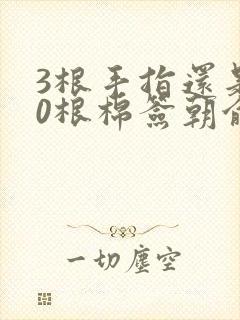 3根手指還是
0根棉簽朝俞
一切塵空